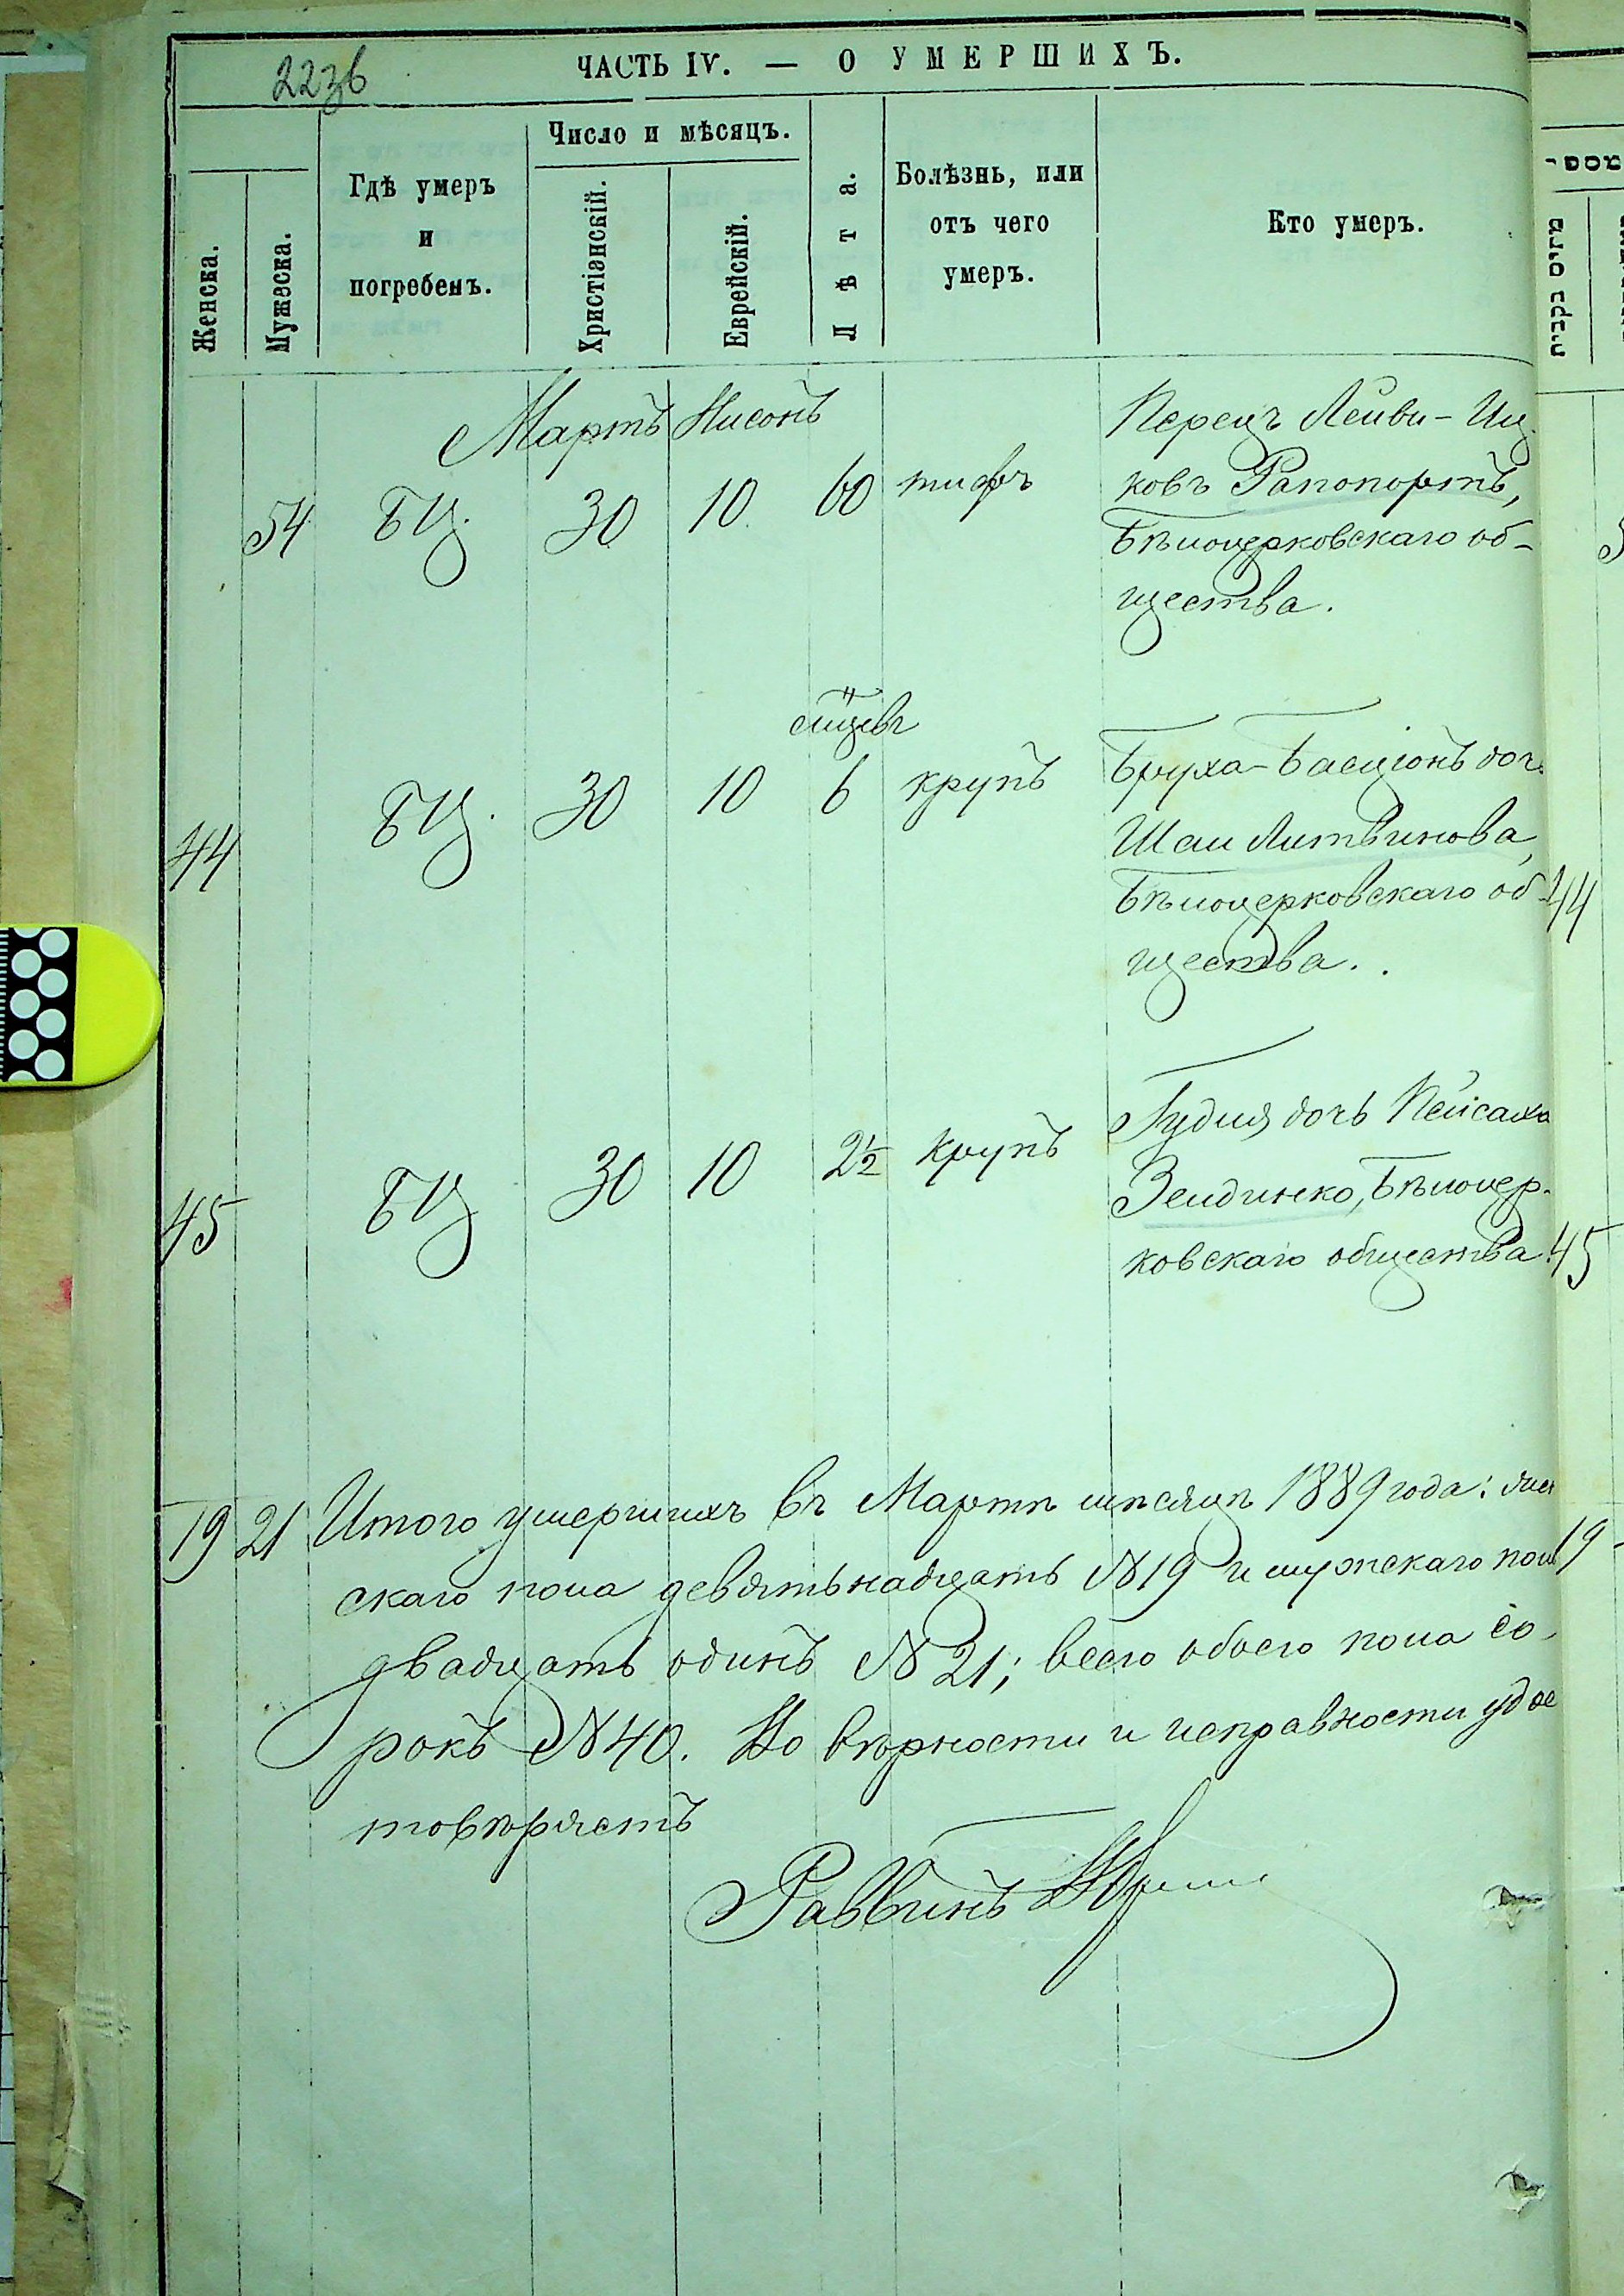 223б
ЧАСТЬ IV. — О УМЕРШИХЪ.
Женска.
Мужеска.
Гдѣ умеръ
и
погребенъ.
Число и мѣсяцъ.
Христіанскій.
Еврейскій.
Лѣта.
Болѣзнь, или
отъ чего
умеръ.
Кто умеръ.
Мартъ Нисонъ
54 БЦ. 30 10 60 тифъ
Перецъ Лейви-Иц
ковъ Рапопортъ,
Бѣлоцерковскаго об-
щества.
44 БЦ. 30 10 6 крупъ
Бруха-Басціонъ дочь
Шаи Литвинова,
Бѣлоцерковскаго об-
щества.
45 БЦ 30 10 2½ крупъ
Гудля дочь Пейсаха
Зелдинко, Бѣлоцер-
ковскаго общества.
19 21 Итого умершихъ въ Мартѣ мѣсяцѣ 1889 года: жен
скаго пола девятьнадцать №19 и мужскаго пол
двадцать одинъ №21; всего обоего пола со-
рокъ №40. Но вѣрности и исправности удос
товѣряетъ
Раввинъ
מספר
מזים בקבית
44
45
19